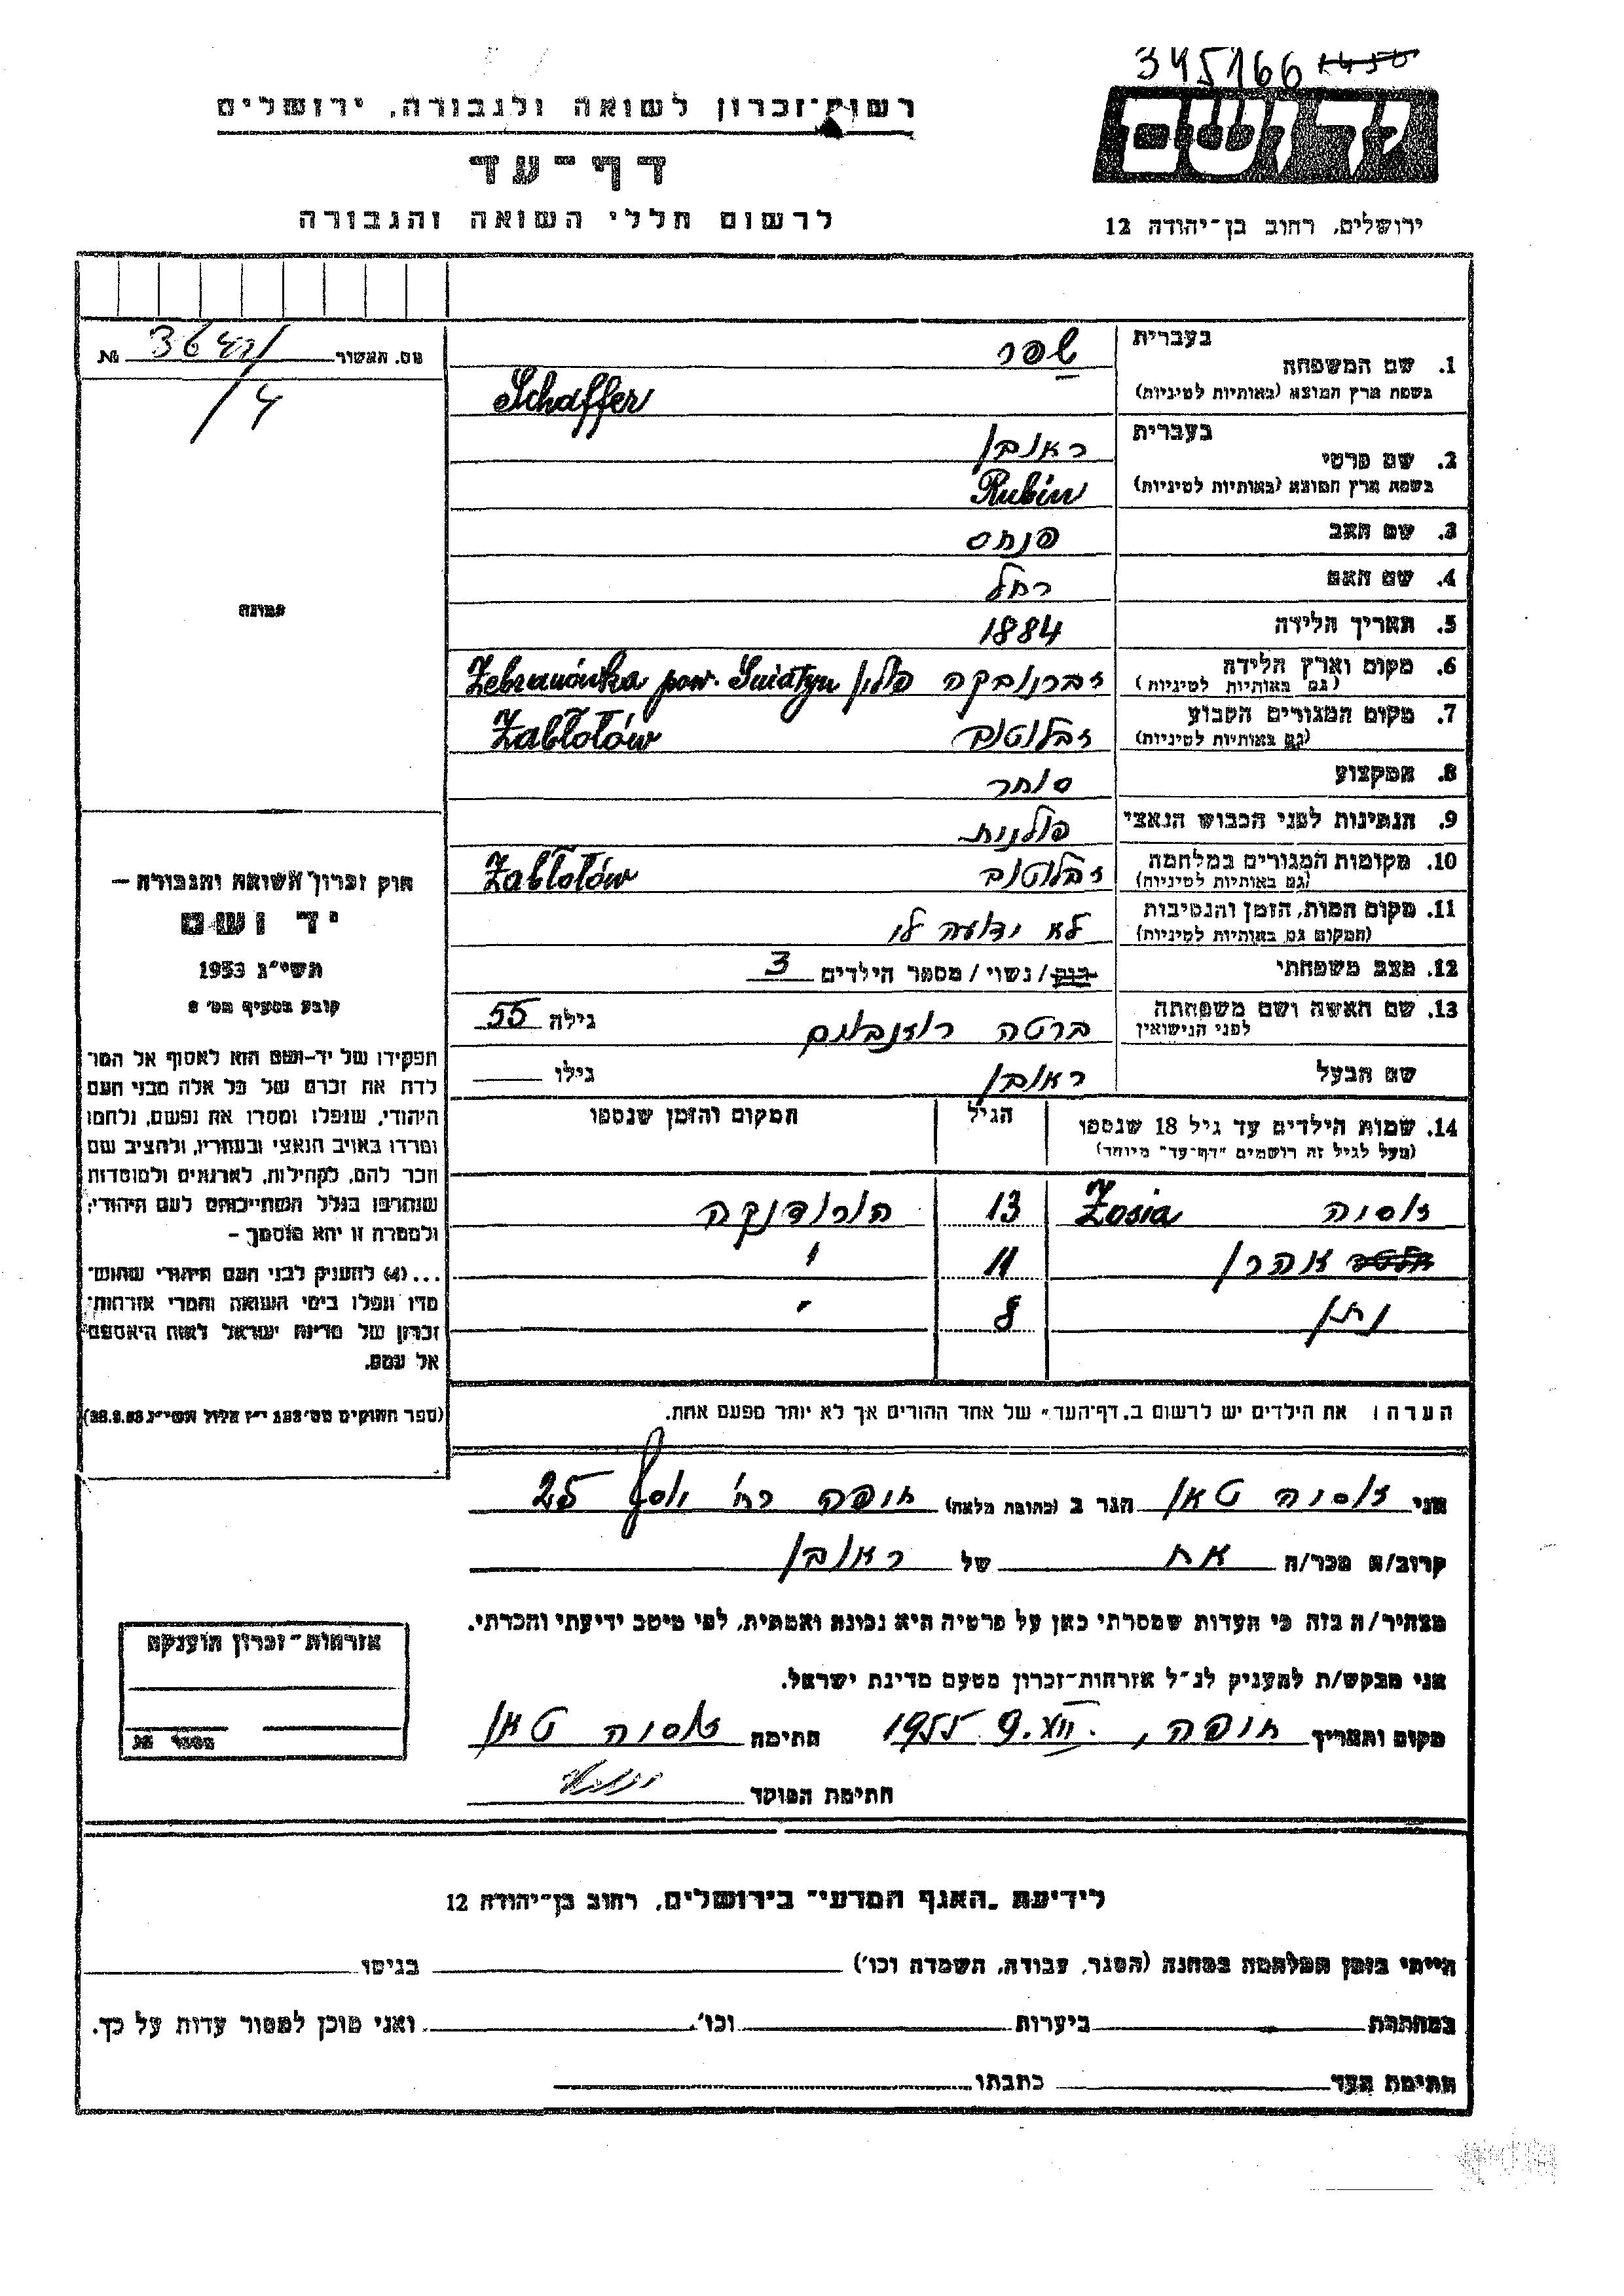 345166
יד ושם
ירושלים, רחוב בן־יהודה 12
רשות־זכרון לשואה ולגבורה, ירושלים
דף־עד
לרשום חללי השואה והגבורה
מס. האשור 3641/4 №
1. שם המשפחה
בעברית שפר
בשפת ארץ המוצא (באותיות לטיניות) Schaffer
2. שם פרטי
בעברית ראובן
בשפת ארץ המוצא (באותיות לטיניות) Rubin
3. שם האב פנחס
4. שם האם רחל
5. תאריך הלידה 1884
6. מקום וארץ הלידה (גם באותיות לטיניות) זברנובקה פולין Zebranówka pow. Śniatyn
7. מקום המגורים הקבוע (גם באותיות לטיניות) זבלוטוב Zabłotów
8. המקצוע סוחר
9. הנתינות לפני הכבוש הנאצי פולנית
10. מקומות המגורים במלחמה (גם באותיות לטיניות) זבלוטוב Zabłotów
11. מקום המות, הזמן והנסיבות (המקום גם באותיות לטיניות) לא ידועה לי
12. מצב משפחתי רווק / נשוי / מספר הילדים 3
13. שם האשה ושם משפחתה לפני הנישואין ברטה רוזנבאום גילה 55
שם הבעל ראובן גילו
14. שמות הילדים עד גיל 18 שנספו (מעל לגיל זה רושמים "דף־עד" מיוחד) הגיל המקום והזמן שנספו
זוסיה Zosia 13 הורודנקה
אהרן 11 "
נתן 8 "
הערה: את הילדים יש לרשום ב"דף־העד" של אחד ההורים אך לא יותר מפעם אחת.
תמונה
חוק זכרון השואה והגבורה —
יד ושם
תשי"ג 1953
קובע בסעיף מס' 2
תפקידו של יד־ושם הוא לאסוף אל המו־
לדת את זכרם של כל אלה מבני העם
היהודי, שנפלו ומסרו את נפשם, נלחמו
ומרדו באויב הנאצי ובעוזריו, ולהציב שם
וזכר להם, לקהילות, לארגונים ולמוסדות
שנחרבו בגלל השתייכותם לעם היהודי;
ולמטרה זו יהא מוסמך —
...(4) להעניק לבני העם היהודי שהוש־
מדו ונפלו בימי השואה והמרי אזרחות־
זכרון של מדינת ישראל לאות היאספם
אל עמם.
(ספר החוקים מס' 132 י"ז אלול תשי"ג 28.8.53)
אני זוסיה טאו הגר ב (כתובת מלאה) חיפה רח' יוסף 25
קרוב/ה מכר/ה אח של ראובן
מצהיר/ה בזה כי העדות שמסרתי כאן על פרטיה היא נכונה ואמתית, לפי מיטב ידיעתי והכרתי.
אני מבקש/ת להעניק לנ"ל אזרחות־זכרון מטעם מדינת ישראל.
מקום ותאריך חיפה, 9.XII.1955 חתימה זוסיה טאו
חתימת הפוקד
אזרחות־זכרון הוענקה
מספר
לידיעת "האגף המדעי" בירושלים, רחוב בן־יהודה 12
הייתי בזמן המלחמה במחנה (הסגר, עבודה, השמדה וכו') בגיטו
במחתרת ביערות וכו'. ואני מוכן למסור עדות על כך.
חתימת העד כתבתו